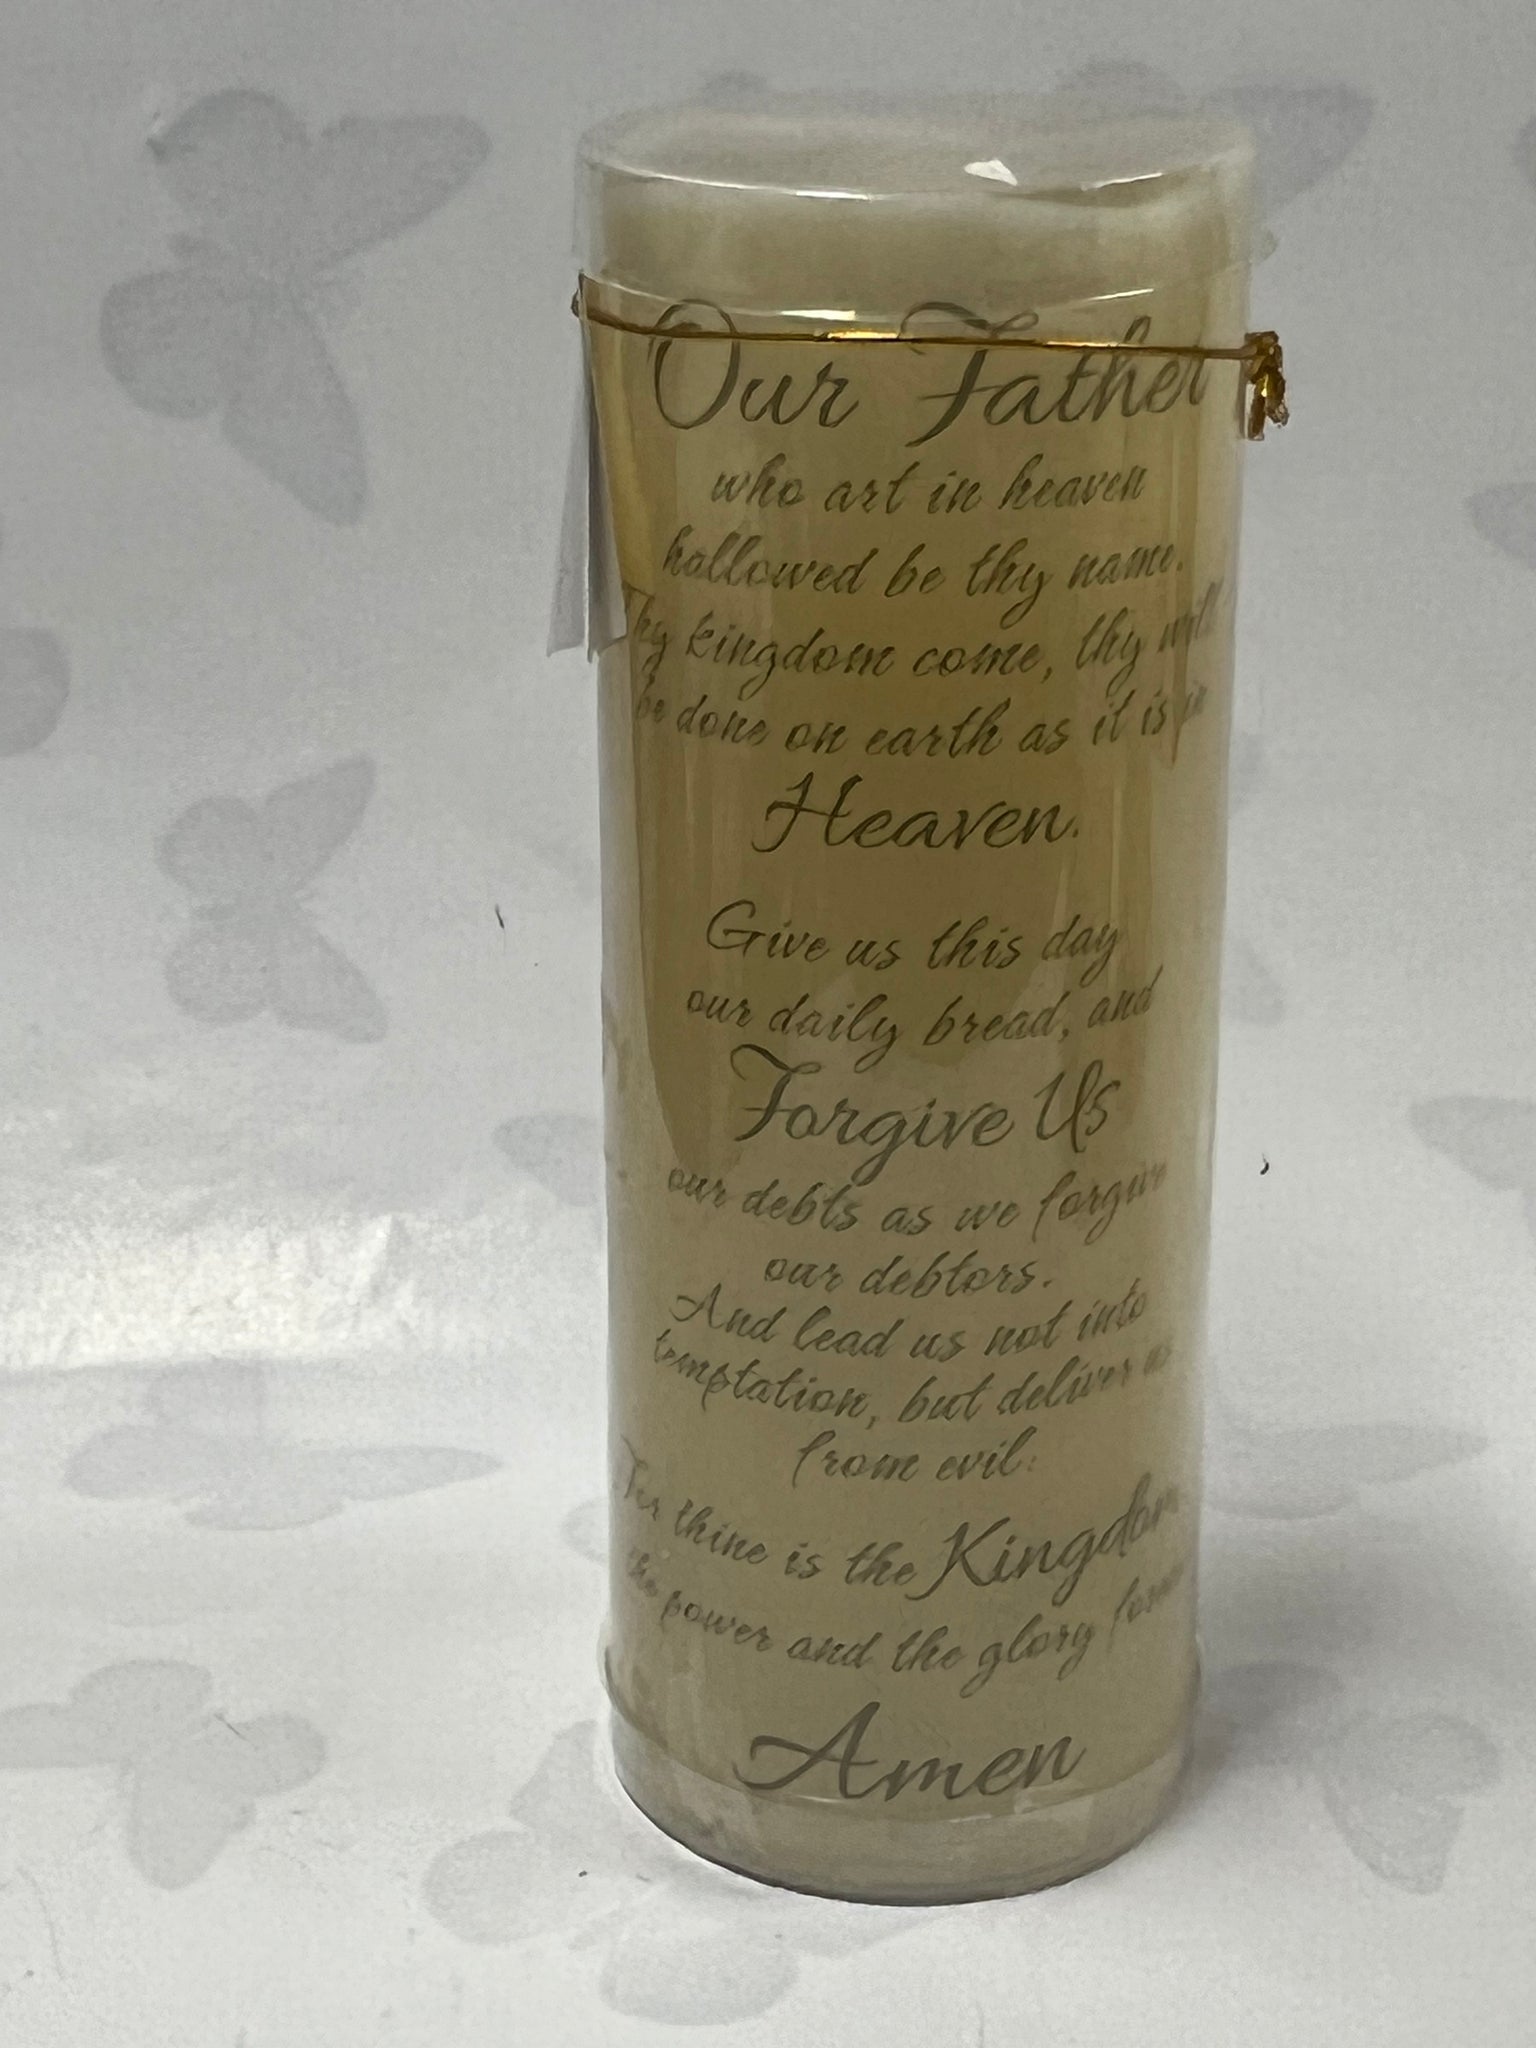 Our Father
who art in heaven
hallowed be thy name.
hy kingdom come, thy will
be done on earth as it is in
Heaven.
Give us this day
our daily bread, and
Forgive Us
our debts as we forgive
our debtors.
And lead us not into
temptation, but deliver us
from evil:
For thine is the Kingdom
the power and the glory
Amen